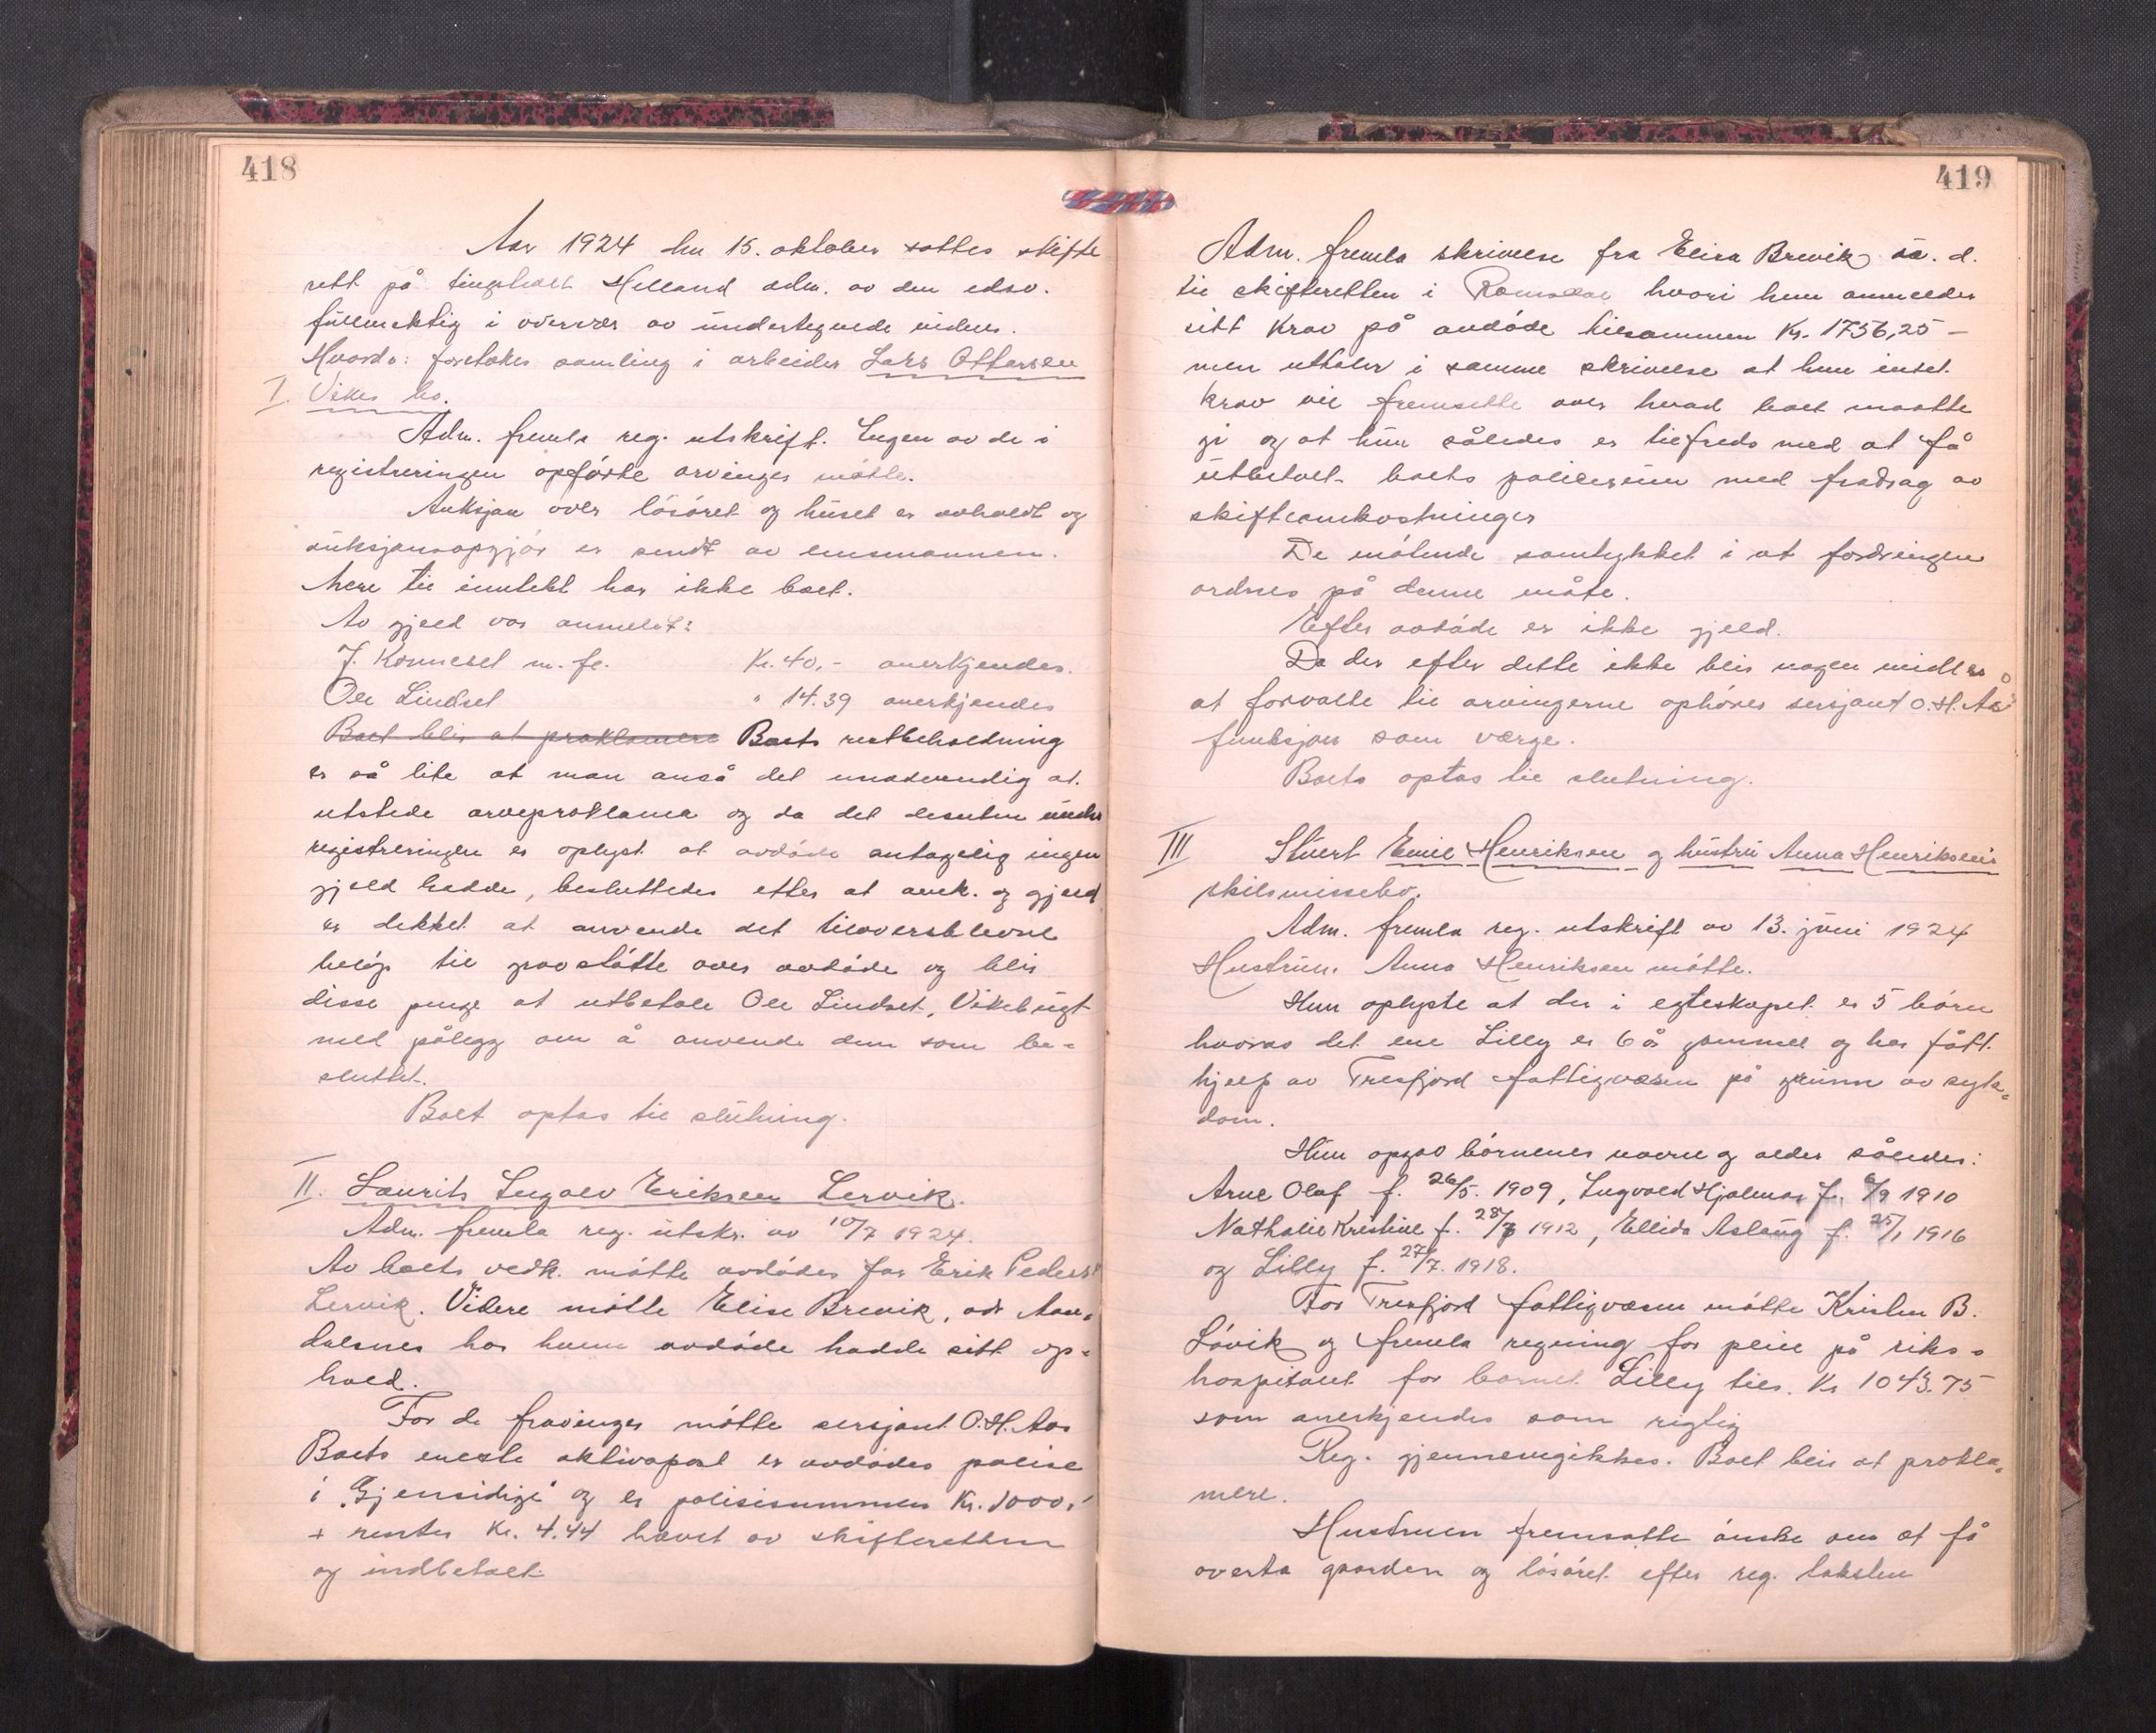 418
Aar 1924 den 15. oktober sattes skifte
rett på tingstedet Helland adm. av den edsv.
fullmektig i overvær av undertegnede vidner.
Hvorda: foretokes samling i arbeider Lars Ottersen
I. Vikes bo.
Adm. fremla reg. utskrift. Ingen av de i
registreringen opførte arvinger møtte.
Auksjon over løsøret og huset er avholdt og
auksjonsopgjør er sendt av lensmannen.
Mere til inntekt har ikke boet.
Av gjeld var anmeldt:
J. Konneset m. fl. Kr. 40,- anerkjendes.
Ole Lindset " 14.39 anerkjendes
Boet blir at proklamere Boets restbeholdning
er så lite at man anså det unødvendig at
utstede arveproklama og da det desuten under
registreringen er oplyst at avdøde antagelig ingen
gjeld hadde, besluttedes efter at omk. og gjeld
er dekket at anvende det tiloversblevne
beløp til gravstøtte over avdøde og blir
disse penge at utbetale Ole Lindset, Vikebugt
med pålegg om å anvende dem som be=
sluttet.
Boet optas til slutning.
II. Laurits Ingolv Eriksen Lervik.
Adm. fremla reg. utskr. av 10/7 1924.
Av boets vedk. møtte avdødes far Erik Peders.
Lervik. Videre møtte Elise Brevik, adr Aan=
dalsnes hos hvem avdøde hadde sitt op=
hold.
For de fravinger møtte sersjant O. H. Aas
Boets eneste aktivapost er avdødes polise
i "Gjensidige" og er polisesummen Kr. 1000,-
+ renter Kr. 4.44 hævet av skifteretten
og indbetalt
419
Adm. fremla skrivelse fra Elisa Brevik sa. d.
til skifteretten i Romsdal hvori hun anmelder
sitt krav på avdøde tilsammen Kr. 1756,25 -
men uttaler i samme skrivelse at hun intet
krav vil fremsette over hvad boet maatte
gi og at hun således er tilfreds med at få
utbetalt boets polisesum med fradrag av
skifteomkostninger
De møtende samtykket i at fordringen
ordnes på denne måte.
Efter avdøde er ikke gjeld.
Da der efter dette ikke blir nogen midler
at forvalte til arvingerne ophører sersjant O. H. Aas
funksjon som værge.
Boets optas til slutning.
III Stuert Emil Henriksen og hustru Anna Henriksens
skilsmissebo.
Adm. fremla reg. utskrift av 13. juni 1924
Hustruen Anna Henriksen møtte.
Hun oplyste at der i egteskapet er 5 børn
hvorav det ene Lilly er 6 år gammel og har fått
hjelp av Tresfjord fattigvæsen på grunn av syk=
dom.
Hun opgav børnenes navne og alder således:
Arne Olaf f. 26/5. 1909, Ingvald Hjalmar f. 6/9 1910
Nathalie Kristine f. 28/7 1912, Ellida Aslaug f. 25/1 1916
og Lilly f. 27/7. 1918.
For Tresfjord fattigvæsen møtte Kristen B.
Løvik og fremla regning for pleie på riks=
hospitalet for barnet Lilly tils. Kr 1043.75
som anerkjendes som rigtig
Reg. gjennemgikkes. Boet blir at prokla=
mere.
Hustruen fremsatte ønske om at få
overta gaarden og løsøret efter reg. taksten